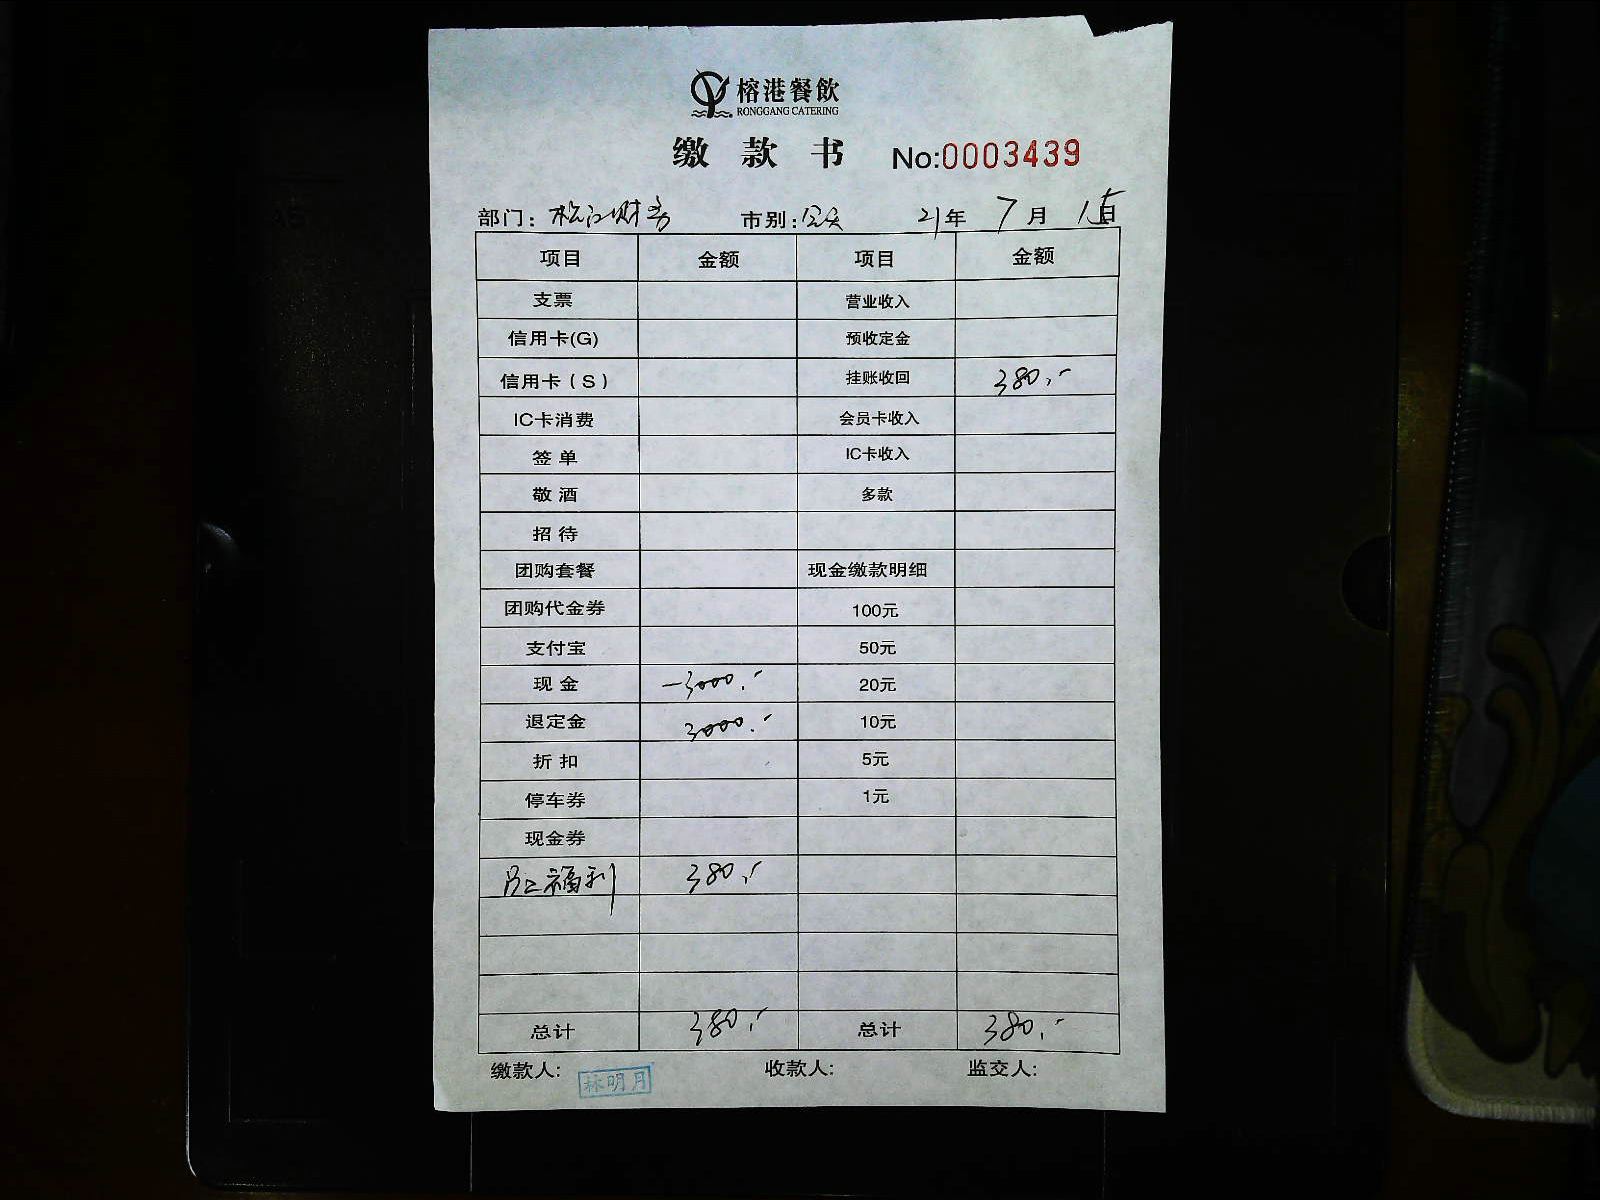 榕港餐飲
RONGGANG CATERING
缴款书 No:0003439
部门: 松江财务 市别: 21年 7月 15日
项目 金额 项目 金额
支票 营业收入
信用卡(G) 预收定金
信用卡(S) 挂账收回 380.-
IC卡消费 会员卡收入
签单 IC卡收入
敬酒 多款
招待
团购套餐 现金缴款明细
团购代金券 100元
支付宝 50元
现金 -3000.- 20元
退定金 3000.- 10元
折扣 5元
停车券 1元
现金券
员工福利 380.-
总计 380.- 总计 380.-
缴款人: 林明月 收款人: 监交人: